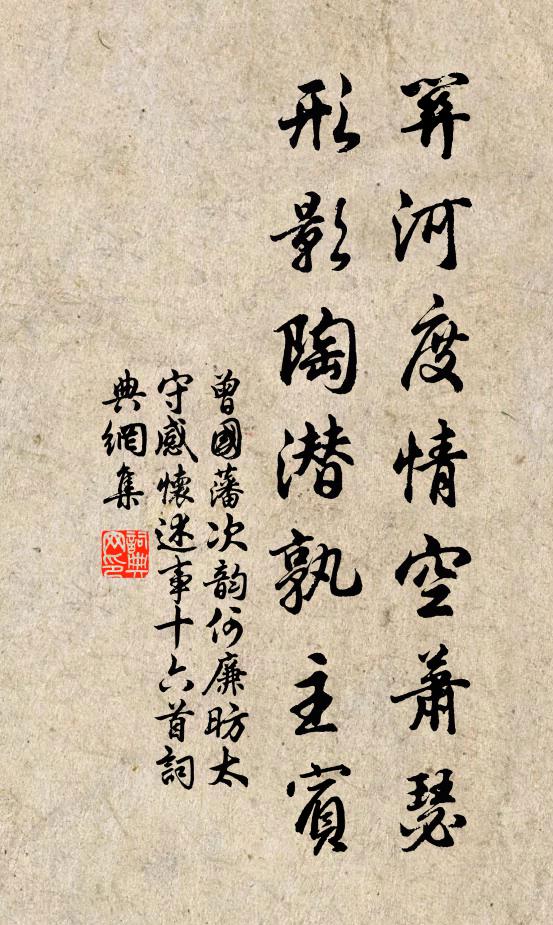 關河度情空蕭瑟
形影陶潜孰主賓
曾國藩次韵何廉昉太
守感懷述事十六首詞
典網集
詞典
网印